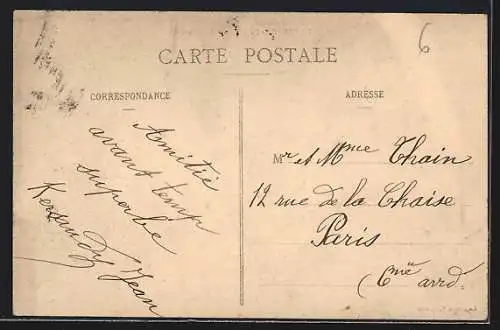 6
CARTE POSTALE
CORRESPONDANCE
ADRESSE
Amitié
avant temp
superbe
Jean
Mr et Mme Thain
12 rue de la Chaise
Paris
6me arrd.